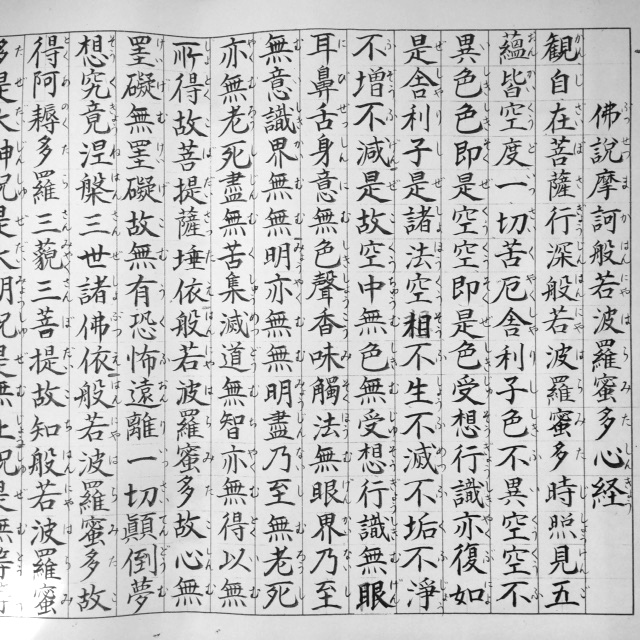 佛說摩訶般若波羅蜜多心経
観自在菩薩行深般若波羅蜜多時照見五
蘊皆空度一切苦厄舎利子色不異空空不
異色色即是空空即是色受想行識亦復如
是舎利子是諸法空相不生不滅不垢不淨
不增不減是故空中無色無受想行識無眼
耳鼻舌身意無色聲香味觸法無眼界乃至
無意識界無無明亦無無明盡乃至無老死
亦無老死盡無苦集滅道無智亦無得以無
所得故菩提薩埵依般若波羅蜜多故心無
罣礙無罣礙故無有恐怖遠離一切顛倒夢
想究竟涅槃三世諸佛依般若波羅蜜多故
得阿耨多羅三藐三菩提故知般若波羅蜜
多是大神呪是大明呪是無上呪是無等等